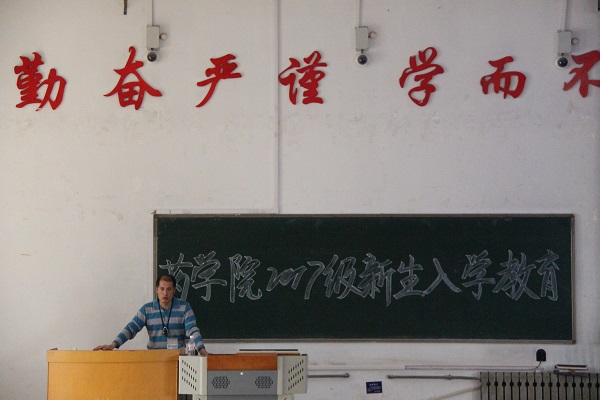 勤奋严谨 学而不
药学院2017级新生入学教育